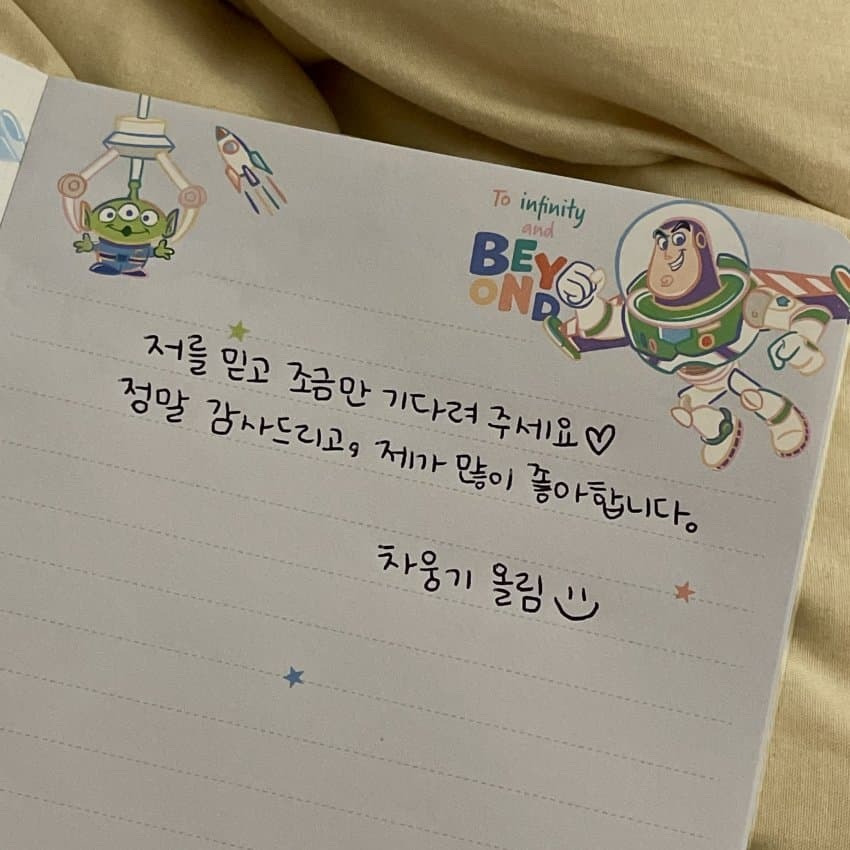 To infinity
and
BEY
OND
저를 믿고 조금만 기다려 주세요♡
정말 감사드리고, 제가 많이 좋아합니다.
차웅기 올림